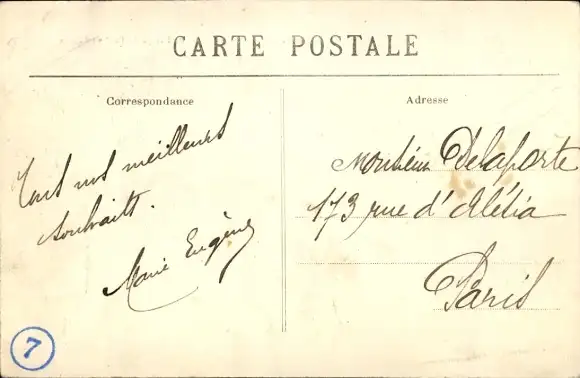 CARTE POSTALE
Correspondance
Tous nos meilleurs
souhaits.
Marie Eugène
Adresse
Monsieur Délaporte
173 rue d'Alésia
Paris
7